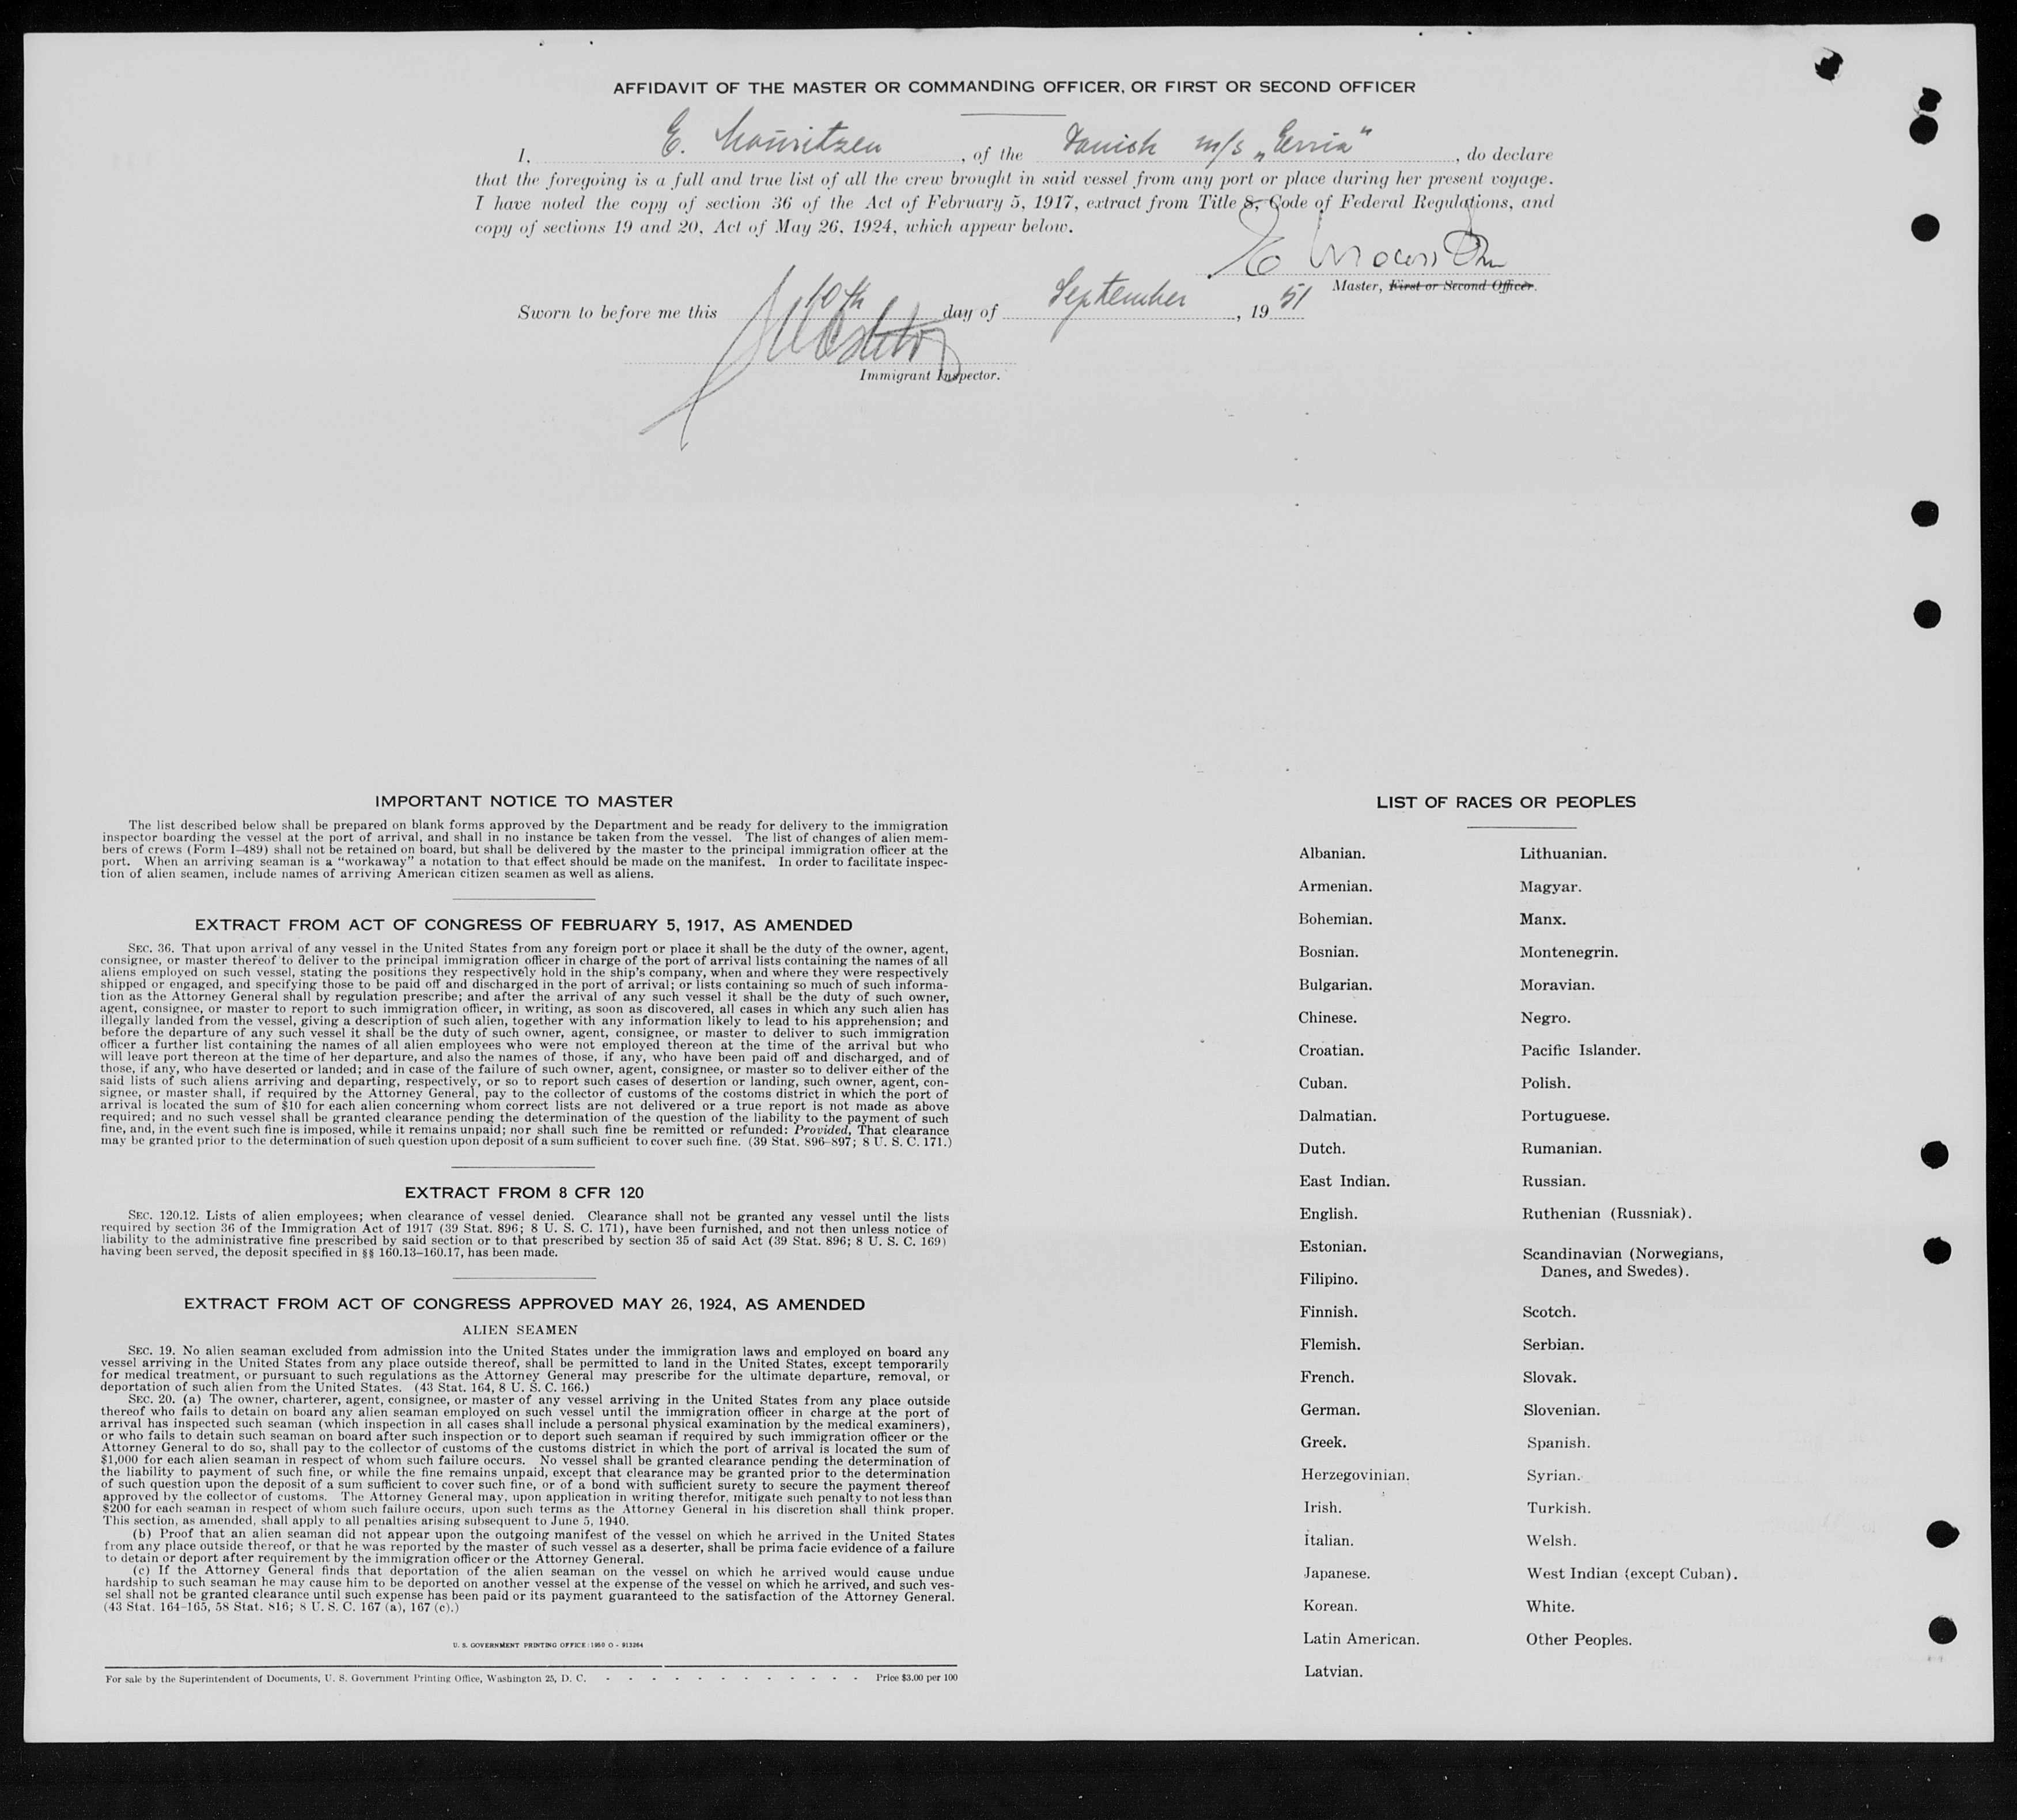 AFFIDAVIT OF THE MASTER OR COMMANDING OFFICER, OR FIRST OR SECOND OFFICER
I, E. Mauritzen, of the Danish m/s „Erria", do declare
that the foregoing is a full and true list of all the crew brought in said vessel from any port or place during her present voyage.
I have noted the copy of section 36 of the Act of February 5, 1917, extract from Title 8, Code of Federal Regulations, and
copy of sections 19 and 20, Act of May 26, 1924, which appear below.
Master, First or Second Officer.
Sworn to before me this 10th day of September, 1951
Immigrant Inspector.
IMPORTANT NOTICE TO MASTER
The list described below shall be prepared on blank forms approved by the Department and be ready for delivery to the immigration
inspector boarding the vessel at the port of arrival, and shall in no instance be taken from the vessel. The list of changes of alien mem-
bers of crews (Form I-489) shall not be retained on board, but shall be delivered by the master to the principal immigration officer at the
port. When an arriving seaman is a "workaway" a notation to that effect should be made on the manifest. In order to facilitate inspec-
tion of alien seamen, include names of arriving American citizen seamen as well as aliens.
EXTRACT FROM ACT OF CONGRESS OF FEBRUARY 5, 1917, AS AMENDED
SEC. 36. That upon arrival of any vessel in the United States from any foreign port or place it shall be the duty of the owner, agent,
consignee, or master thereof to deliver to the principal immigration officer in charge of the port of arrival lists containing the names of all
aliens employed on such vessel, stating the positions they respectively hold in the ship's company, when and where they were respectively
shipped or engaged, and specifying those to be paid off and discharged in the port of arrival; or lists containing so much of such informa-
tion as the Attorney General shall by regulation prescribe; and after the arrival of any such vessel it shall be the duty of such owner,
agent, consignee, or master to report to such immigration officer, in writing, as soon as discovered, all cases in which any such alien has
illegally landed from the vessel, giving a description of such alien, together with any information likely to lead to his apprehension; and
before the departure of any such vessel it shall be the duty of such owner, agent, consignee, or master to deliver to such immigration
officer a further list containing the names of all alien employees who were not employed thereon at the time of the arrival but who
will leave port thereon at the time of her departure, and also the names of those, if any, who have been paid off and discharged, and of
those, if any, who have deserted or landed; and in case of the failure of such owner, agent, consignee, or master so to deliver either of the
said lists of such aliens arriving and departing, respectively, or so to report such cases of desertion or landing, such owner, agent, con-
signee, or master shall, if required by the Attorney General, pay to the collector of customs of the costoms district in which the port of
arrival is located the sum of $10 for each alien concerning whom correct lists are not delivered or a true report is not made as above
required; and no such vessel shall be granted clearance pending the determination of the question of the liability to the payment of such
fine, and, in the event such fine is imposed, while it remains unpaid; nor shall such fine be remitted or refunded: Provided, That clearance
may be granted prior to the determination of such question upon deposit of a sum sufficient to cover such fine. (39 Stat. 896-897; 8 U. S. C. 171.)
EXTRACT FROM 8 CFR 120
SEC. 120.12. Lists of alien employees; when clearance of vessel denied. Clearance shall not be granted any vessel until the lists
required by section 36 of the Immigration Act of 1917 (39 Stat. 896; 8 U. S. C. 171), have been furnished, and not then unless notice of
liability to the administrative fine prescribed by said section or to that prescribed by section 35 of said Act (39 Stat. 896; 8 U. S. C. 169)
having been served, the deposit specified in §§ 160.13-160.17, has been made.
EXTRACT FROM ACT OF CONGRESS APPROVED MAY 26, 1924, AS AMENDED
ALIEN SEAMEN
SEC. 19. No alien seaman excluded from admission into the United States under the immigration laws and employed on board any
vessel arriving in the United States from any place outside thereof, shall be permitted to land in the United States, except temporarily
for medical treatment, or pursuant to such regulations as the Attorney General may prescribe for the ultimate departure, removal, or
deportation of such alien from the United States. (43 Stat. 164, 8 U. S. C. 166.)
SEC. 20. (a) The owner, charterer, agent, consignee, or master of any vessel arriving in the United States from any place outside
thereof who fails to detain on board any alien seaman employed on such vessel until the immigration officer in charge at the port of
arrival has inspected such seaman (which inspection in all cases shall include a personal physical examination by the medical examiners),
or who fails to detain such seaman on board after such inspection or to deport such seaman if required by such immigration officer or the
Attorney General to do so, shall pay to the collector of customs of the customs district in which the port of arrival is located the sum of
$1,000 for each alien seaman in respect of whom such failure occurs. No vessel shall be granted clearance pending the determination of
the liability to payment of such fine, or while the fine remains unpaid, except that clearance may be granted prior to the determination
of such question upon the deposit of a sum sufficient to cover such fine, or of a bond with sufficient surety to secure the payment thereof
approved by the collector of customs. The Attorney General may, upon application in writing therefor, mitigate such penalty to not less than
$200 for each seaman in respect of whom such failure occurs, upon such terms as the Attorney General in his discretion shall think proper.
This section, as amended, shall apply to all penalties arising subsequent to June 5, 1940.
(b) Proof that an alien seaman did not appear upon the outgoing manifest of the vessel on which he arrived in the United States
from any place outside thereof, or that he was reported by the master of such vessel as a deserter, shall be prima facie evidence of a failure
to detain or deport after requirement by the immigration officer or the Attorney General.
(c) If the Attorney General finds that deportation of the alien seaman on the vessel on which he arrived would cause undue
hardship to such seaman he may cause him to be deported on another vessel at the expense of the vessel on which he arrived, and such ves-
sel shall not be granted clearance until such expense has been paid or its payment guaranteed to the satisfaction of the Attorney General.
(43 Stat. 164-165, 58 Stat. 816; 8 U. S. C. 167 (a), 167 (c).)
U. S. GOVERNMENT PRINTING OFFICE: 1950 O - 913264
For sale by the Superintendent of Documents, U. S. Government Printing Office, Washington 25, D. C. - - - - - - - - - - - - Price $3.00 per 100
LIST OF RACES OR PEOPLES
Albanian.
Armenian.
Bohemian.
Bosnian.
Bulgarian.
Chinese.
Croatian.
Cuban.
Dalmatian.
Dutch.
East Indian.
English.
Estonian.
Filipino.
Finnish.
Flemish.
French.
German.
Greek.
Herzegovinian.
Irish.
Italian.
Japanese.
Korean.
Latin American.
Latvian.
Lithuanian.
Magyar.
Manx.
Montenegrin.
Moravian.
Negro.
Pacific Islander.
Polish.
Portuguese.
Rumanian.
Russian.
Ruthenian (Russniak).
Scandinavian (Norwegians,
Danes, and Swedes).
Scotch.
Serbian.
Slovak.
Slovenian.
Spanish.
Syrian.
Turkish.
Welsh.
West Indian (except Cuban).
White.
Other Peoples.